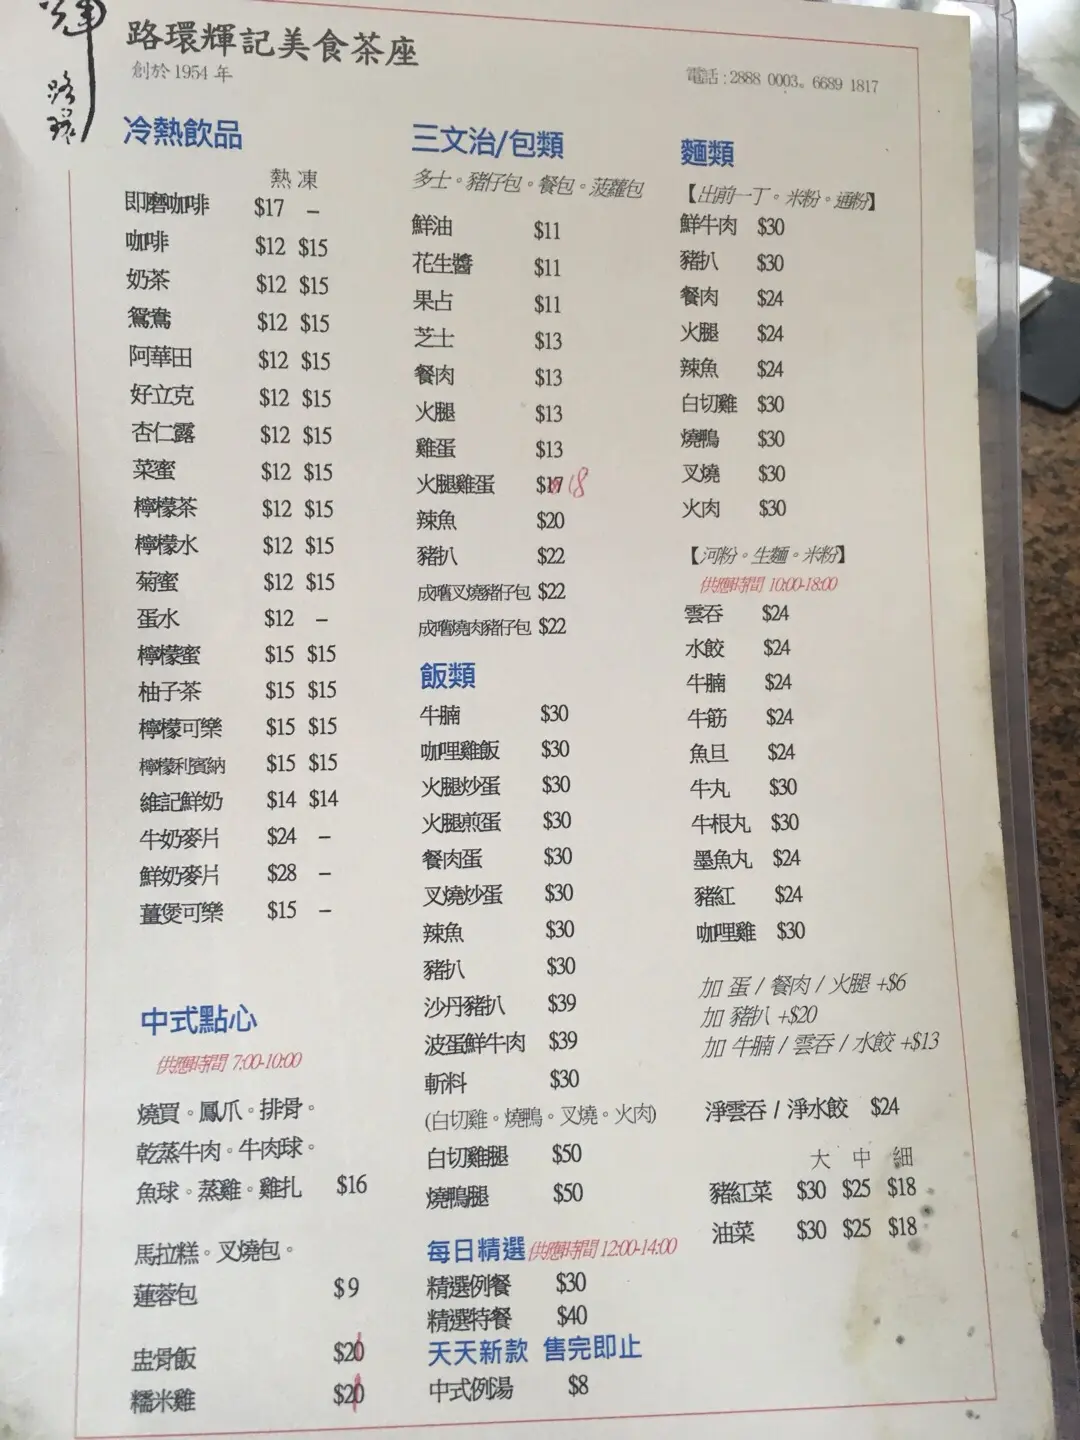 輝
路環
路環輝記美食茶座
創於 1954 年
電話 : 2888 0003。6689 1817
冷熱飲品
熱 凍
即磨咖啡 $17 –
咖啡 $12 $15
奶茶 $12 $15
鴛鴦 $12 $15
阿華田 $12 $15
好立克 $12 $15
杏仁露 $12 $15
菜蜜 $12 $15
檸檬茶 $12 $15
檸檬水 $12 $15
菊蜜 $12 $15
蛋水 $12 –
檸檬蜜 $15 $15
柚子茶 $15 $15
檸檬可樂 $15 $15
檸檬利賓納 $15 $15
維記鮮奶 $14 $14
牛奶麥片 $24 –
鮮奶麥片 $28 –
薑煲可樂 $15 –
中式點心
供應時間 7:00-10:00
燒買。鳳爪。排骨。
乾蒸牛肉。牛肉球。
魚球。蒸雞。雞扎 $16
馬拉糕。叉燒包。
蓮蓉包 $9
盅骨飯 $20
糯米雞 $20
三文治/包類
多士。豬仔包。餐包。菠蘿包
鮮油 $11
花生醬 $11
果占 $11
芝士 $13
餐肉 $13
火腿 $13
雞蛋 $13
火腿雞蛋 $17 18
辣魚 $20
豬扒 $22
成嚿叉燒豬仔包 $22
成嚿燒肉豬仔包 $22
飯類
牛腩 $30
咖哩雞飯 $30
火腿炒蛋 $30
火腿煎蛋 $30
餐肉蛋 $30
叉燒炒蛋 $30
辣魚 $30
豬扒 $30
沙丹豬扒 $39
波蛋鮮牛肉 $39
斬料 $30
(白切雞。燒鴨。叉燒。火肉)
白切雞腿 $50
燒鴨腿 $50
每日精選 供應時間 12:00-14:00
精選例餐 $30
精選特餐 $40
天天新款 售完即止
中式例湯 $8
麵類
【出前一丁。米粉。通粉】
鮮牛肉 $30
豬扒 $30
餐肉 $24
火腿 $24
辣魚 $24
白切雞 $30
燒鴨 $30
叉燒 $30
火肉 $30
【河粉。生麵。米粉】
供應時間 10:00-18:00
雲吞 $24
水餃 $24
牛腩 $24
牛筋 $24
魚旦 $24
牛丸 $30
牛根丸 $30
墨魚丸 $24
豬紅 $24
咖哩雞 $30
加 蛋 / 餐肉 / 火腿 +$6
加 豬扒 +$20
加 牛腩 / 雲吞 / 水餃 +$13
淨雲吞 / 淨水餃 $24
大 中 細
豬紅菜 $30 $25 $18
油菜 $30 $25 $18